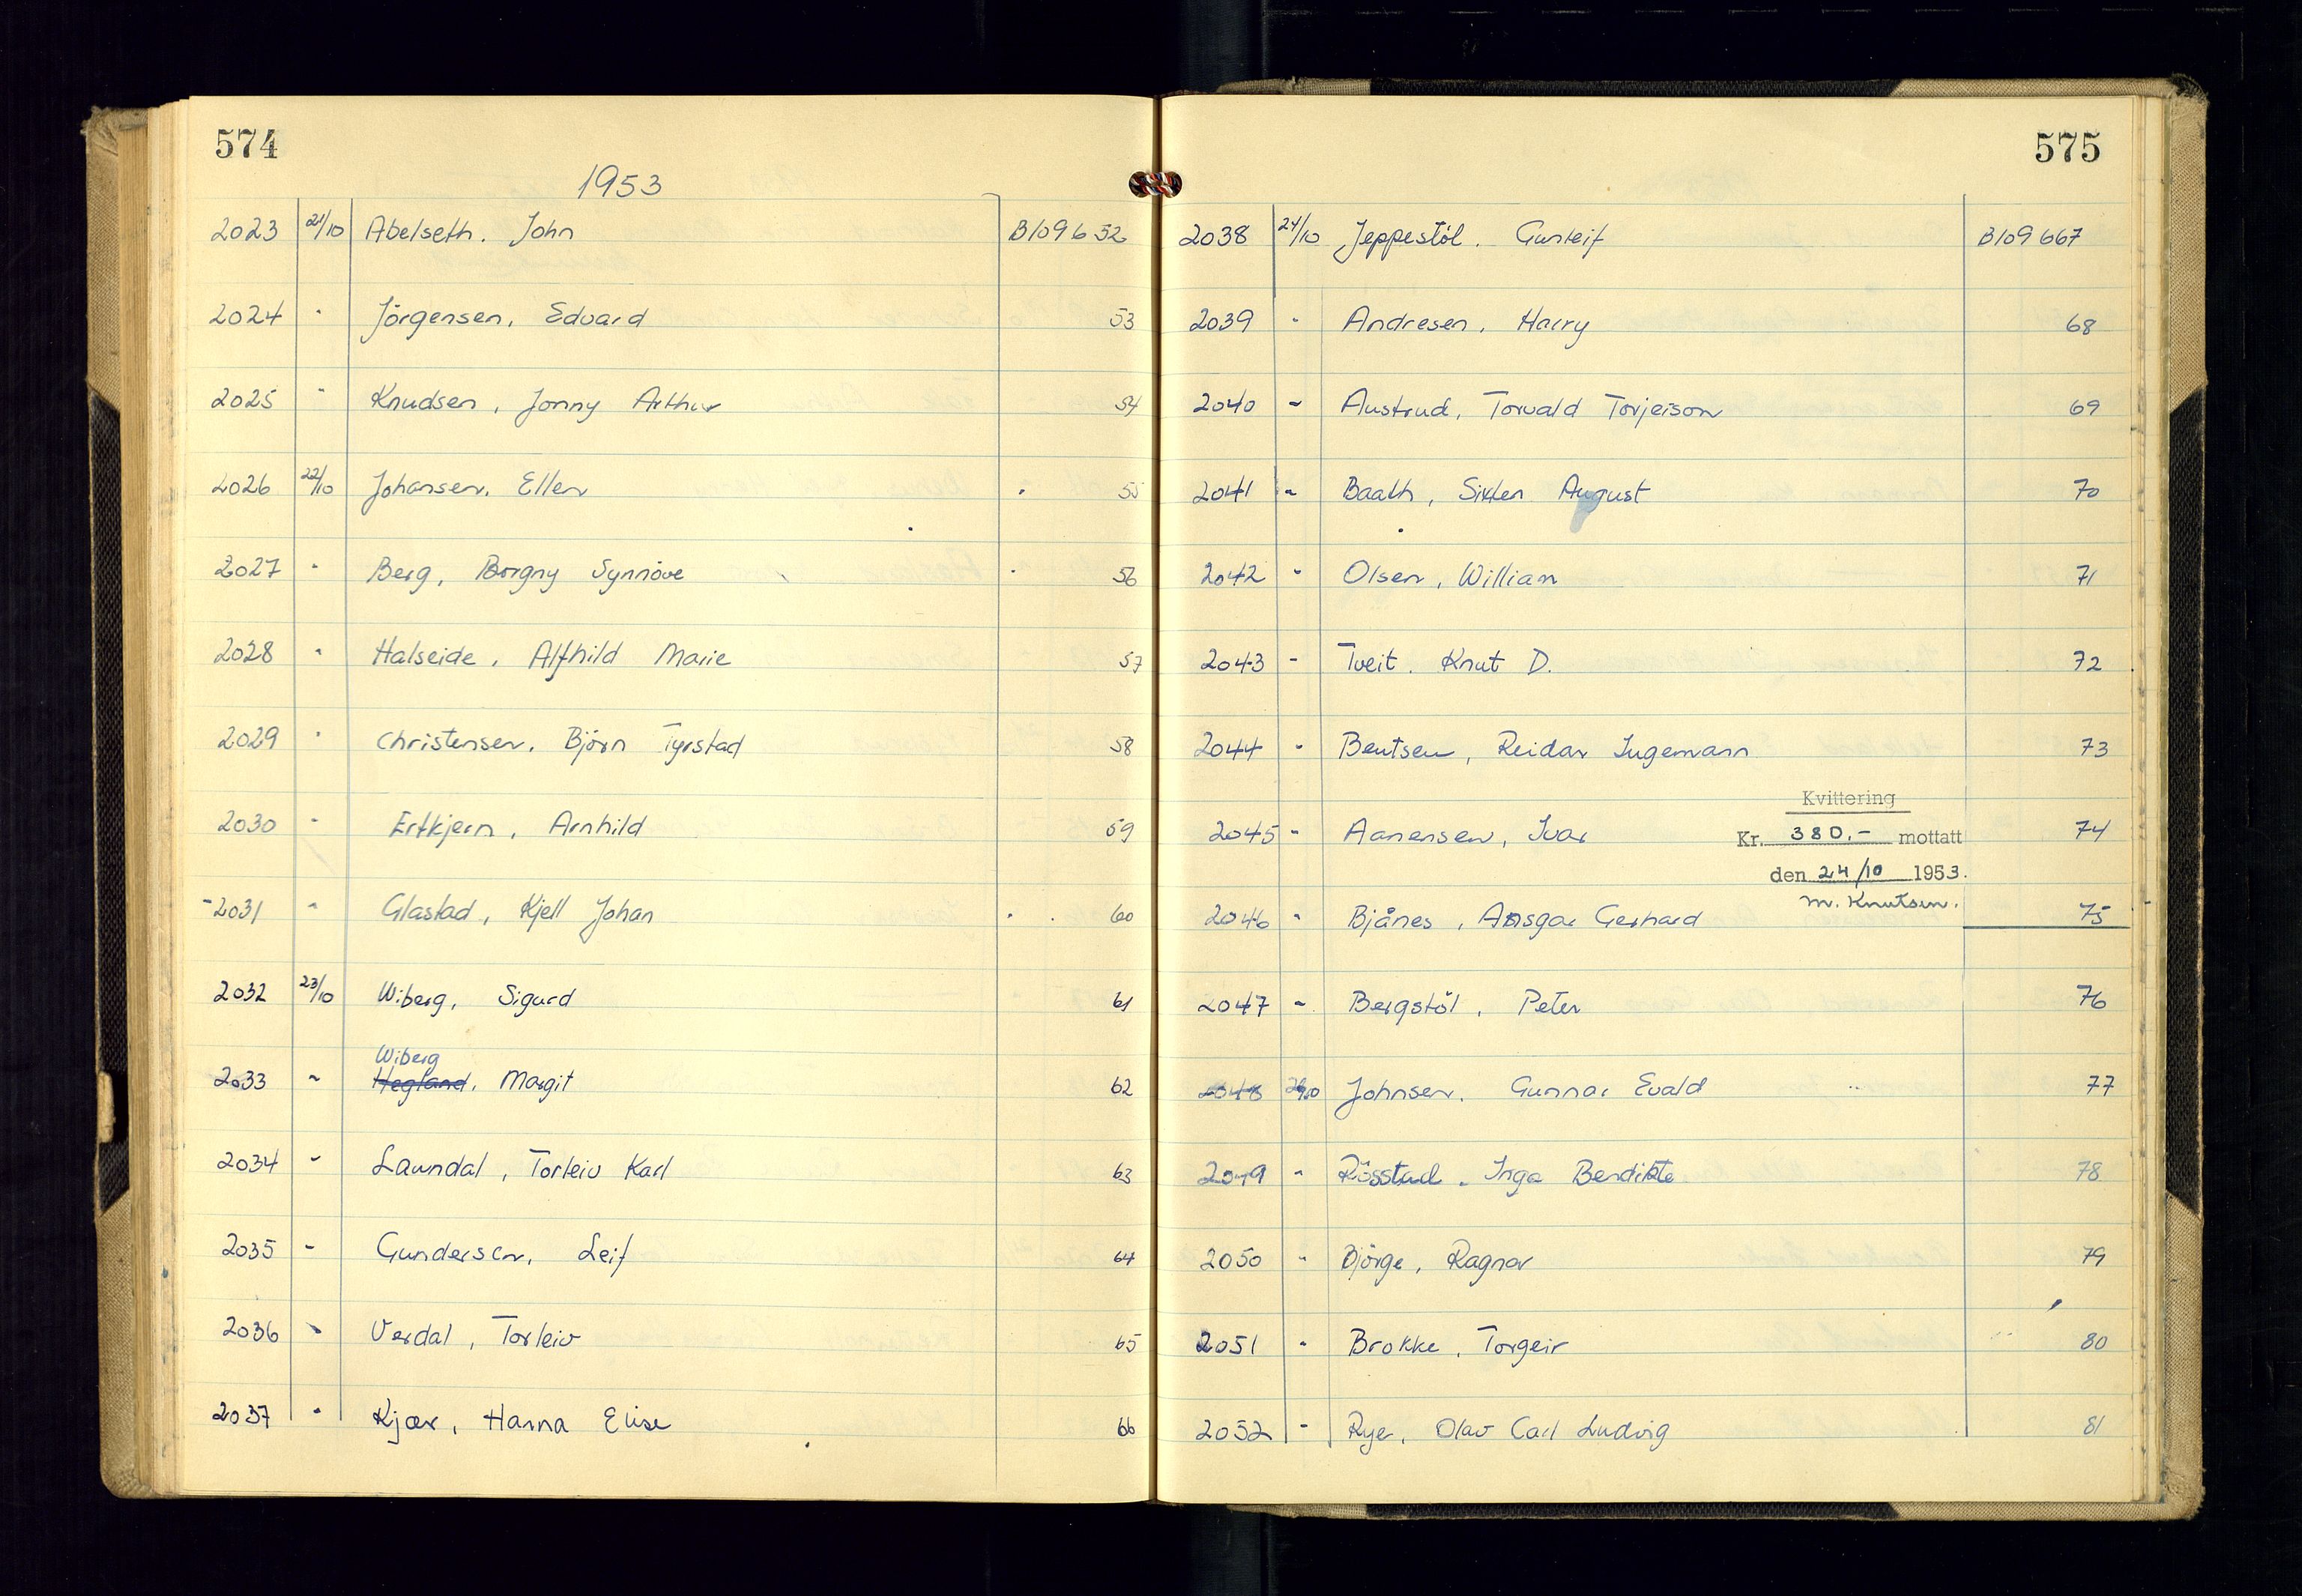 574
1953
2023 21/10 Abelseth. John B109652
2024 " Jörgensen, Edvard 53
2025 " Knudsen, Jonny Arthur 54
2026 22/10 Johansen. Ellen 55
2027 " Berg, Borgny Synnöve 56
2028 " Halseide, Alfhild Marie 57
2029 " Christensen, Björn Tyrstad 58
2030 " Ertkjern, Arnhild 59
2031 " Glastad, Kjell Johan 60
2032 23/10 Wiberg, Sigurd 61
Wiberg
2033 " Hegland, Margit 62
2034 " Laundal, Torleiv Karl 63
2035 " Gundersen, Leif 64
2036 " Verdal, Torleiv 65
2037 " Kjær, Hanna Elise 66
575
2038 24/10 Jeppestöl. Gunleif B109667
2039 " Andresen, Harry 68
2040 " Austrud, Torvald Torjeison 69
2041 " Baath, Sixten August 70
2042 " Olsen, William 71
2043 " Tveit. Knut D. 72
2044 " Bentsen, Reidar Ingemann 73
Kvittering
2045 " Aanensen, Ivar Kr. 380.- mottatt 74
den 24/10 1953.
M. Knutsen.
2046 " Bjånes, Ansgar Gerhard 75
2047 " Bergstöl, Peter 76
2048 Johnsen. Gunnar Evald 77
2049 " Rösstad. Inga Bendikte 78
2050 " Björge, Ragnar 79
2051 " Brokke, Torgeir 80
2052 " Rye, Olav Carl Ludvig 81